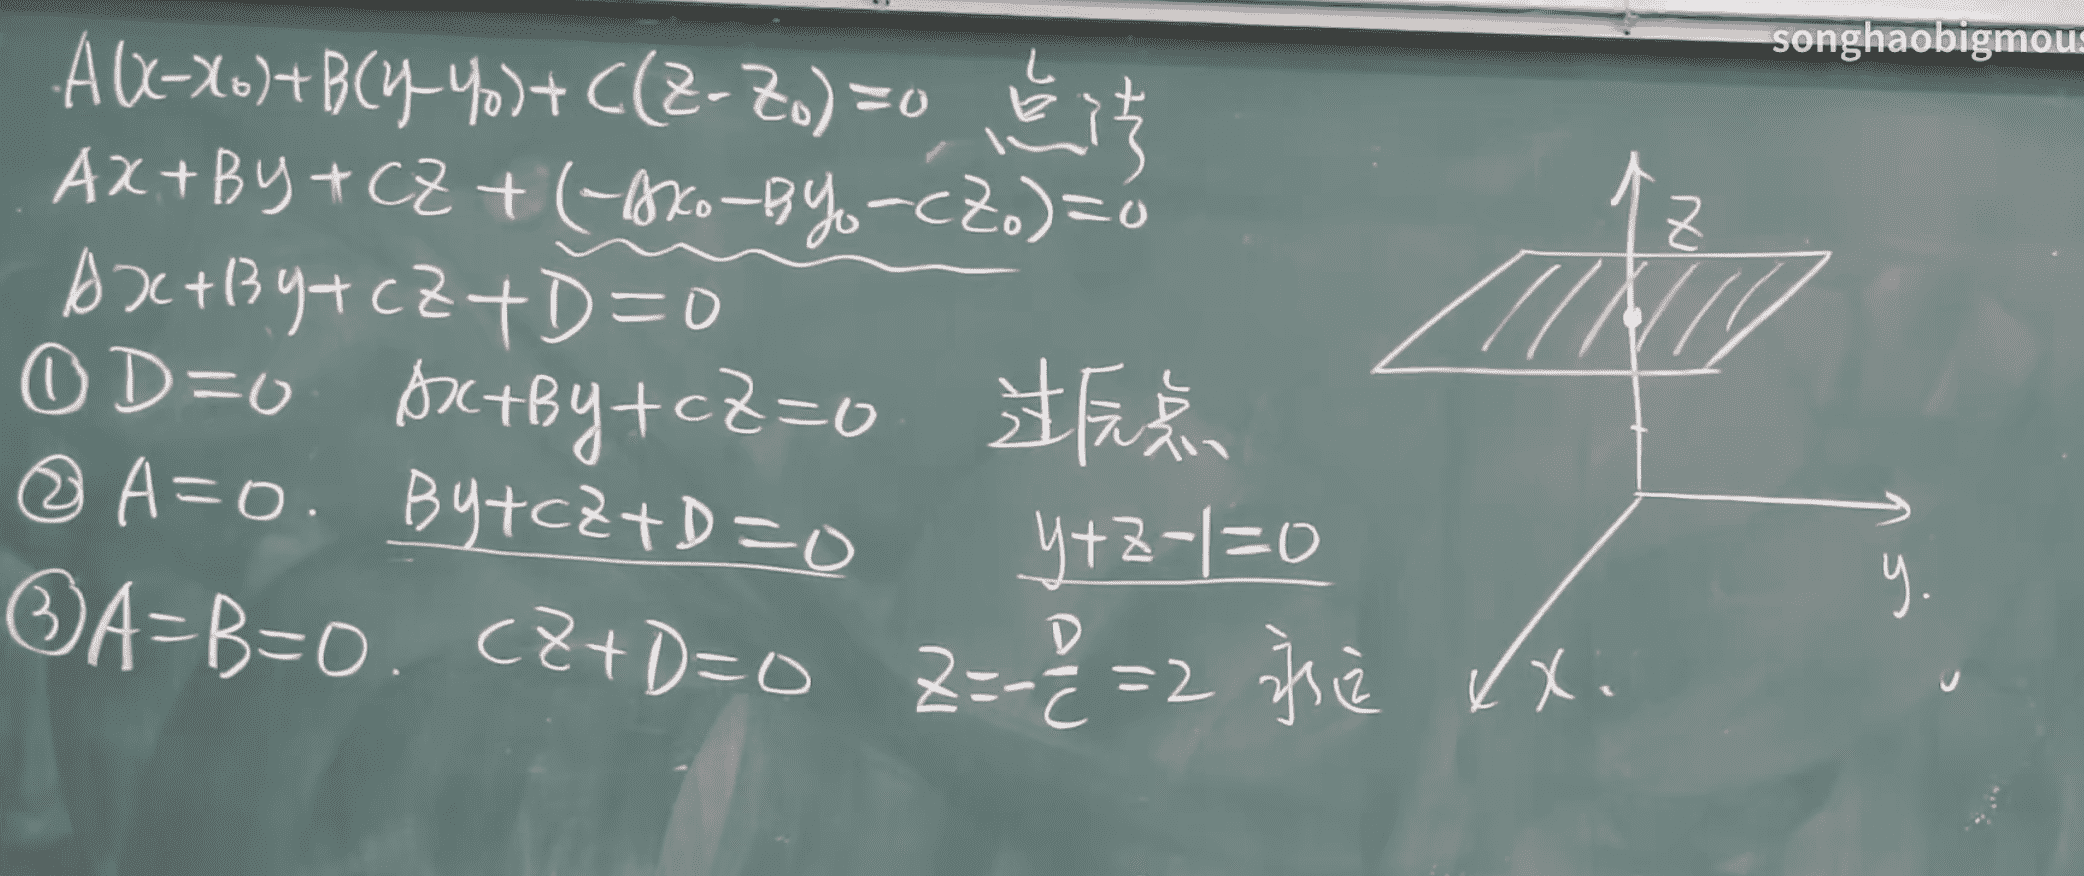 songhaobigmous
A(x-x₀)+B(y-y₀)+C(z-z₀)=0 点法
Ax+By+Cz+(-Ax₀-By₀-Cz₀)=0
Ax+By+Cz+D=0
① D=0 Ax+By+Cz=0 过原点
② A=0. By+Cz+D=0 y+z-1=0
③ A=B=0. Cz+D=0 z=-D/C=2 永远
z
y.
x.